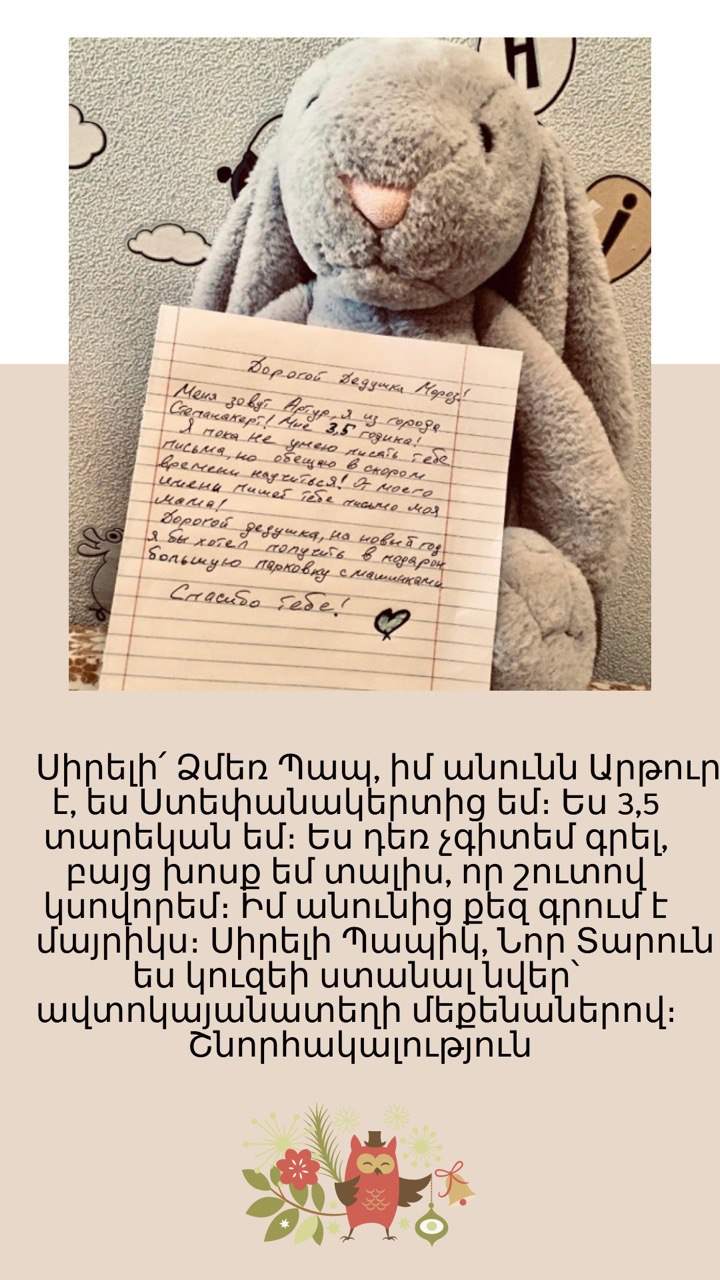 Н
i
Дорогой Дедушка Мороз!
Меня зовут Артур, я из города
Степанакерт! Мне 3,5 годика!
Я пока не умею писать тебе
письма, но обещаю в скором
времени научиться! От моего
имени пишет тебе письмо моя
мама!
Дорогой дедушка, на новый год
я бы хотел получить в подарок
большую парковку с машинками
Спасибо тебе!
Սիրելի՛ Ձմեռ Պապ, իմ անունն Արթուր
է, ես Ստեփանակերտից եմ։ Ես 3,5
տարեկան եմ։ Ես դեռ չգիտեմ գրել,
բայց խոսք եմ տալիս, որ շուտով
կսովորեմ։ Իմ անունից քեզ գրում է
մայրիկս։ Սիրելի Պապիկ, Նոր Տարուն
ես կուզեի ստանալ նվեր՝
ավտոկայանատեղի մեքենաներով։
Շնորհակալություն